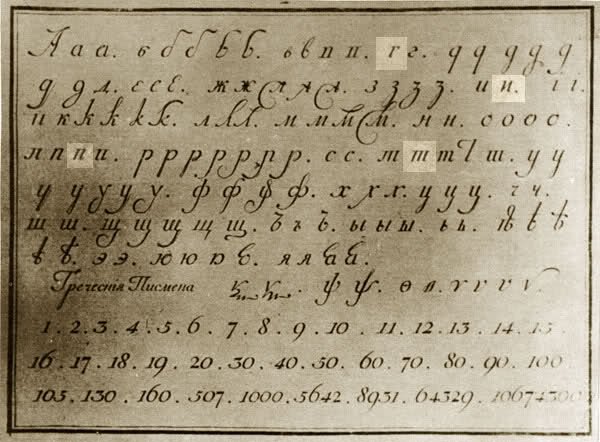 А а а. б б б ъ ъ. в в п п. г г. д д д д д
д д д. е с е. ж ж ж ж ж. з з з з. и и. і і.
и к к k k к. л л л. м м м м. н н. о о о о.
п п п и. р р р р р р р р. с с. т т т т ш. у у
у у у у у. ф ф ф ф. х х х. ц ц ц. ч ч.
ш ш. щ щ щ щ щ. ъ ъ ъ. ы ы ы. ь ь. ѣ ѣ ѣ
ѣ ѣ. э э. ю ю ю ю. я я
Греческія Писмена ѱ ѱ. ѳ ѳ. ѵ ѵ ѵ ѵ.
1. 2. 3. 4. 5. 6. 7. 8. 9. 10. 11. 12. 13. 14. 15.
16. 17. 18. 19. 20. 30. 40. 50. 60. 70. 80. 90. 100
105. 130. 160. 507. 1000. 5642. 8931. 64329.